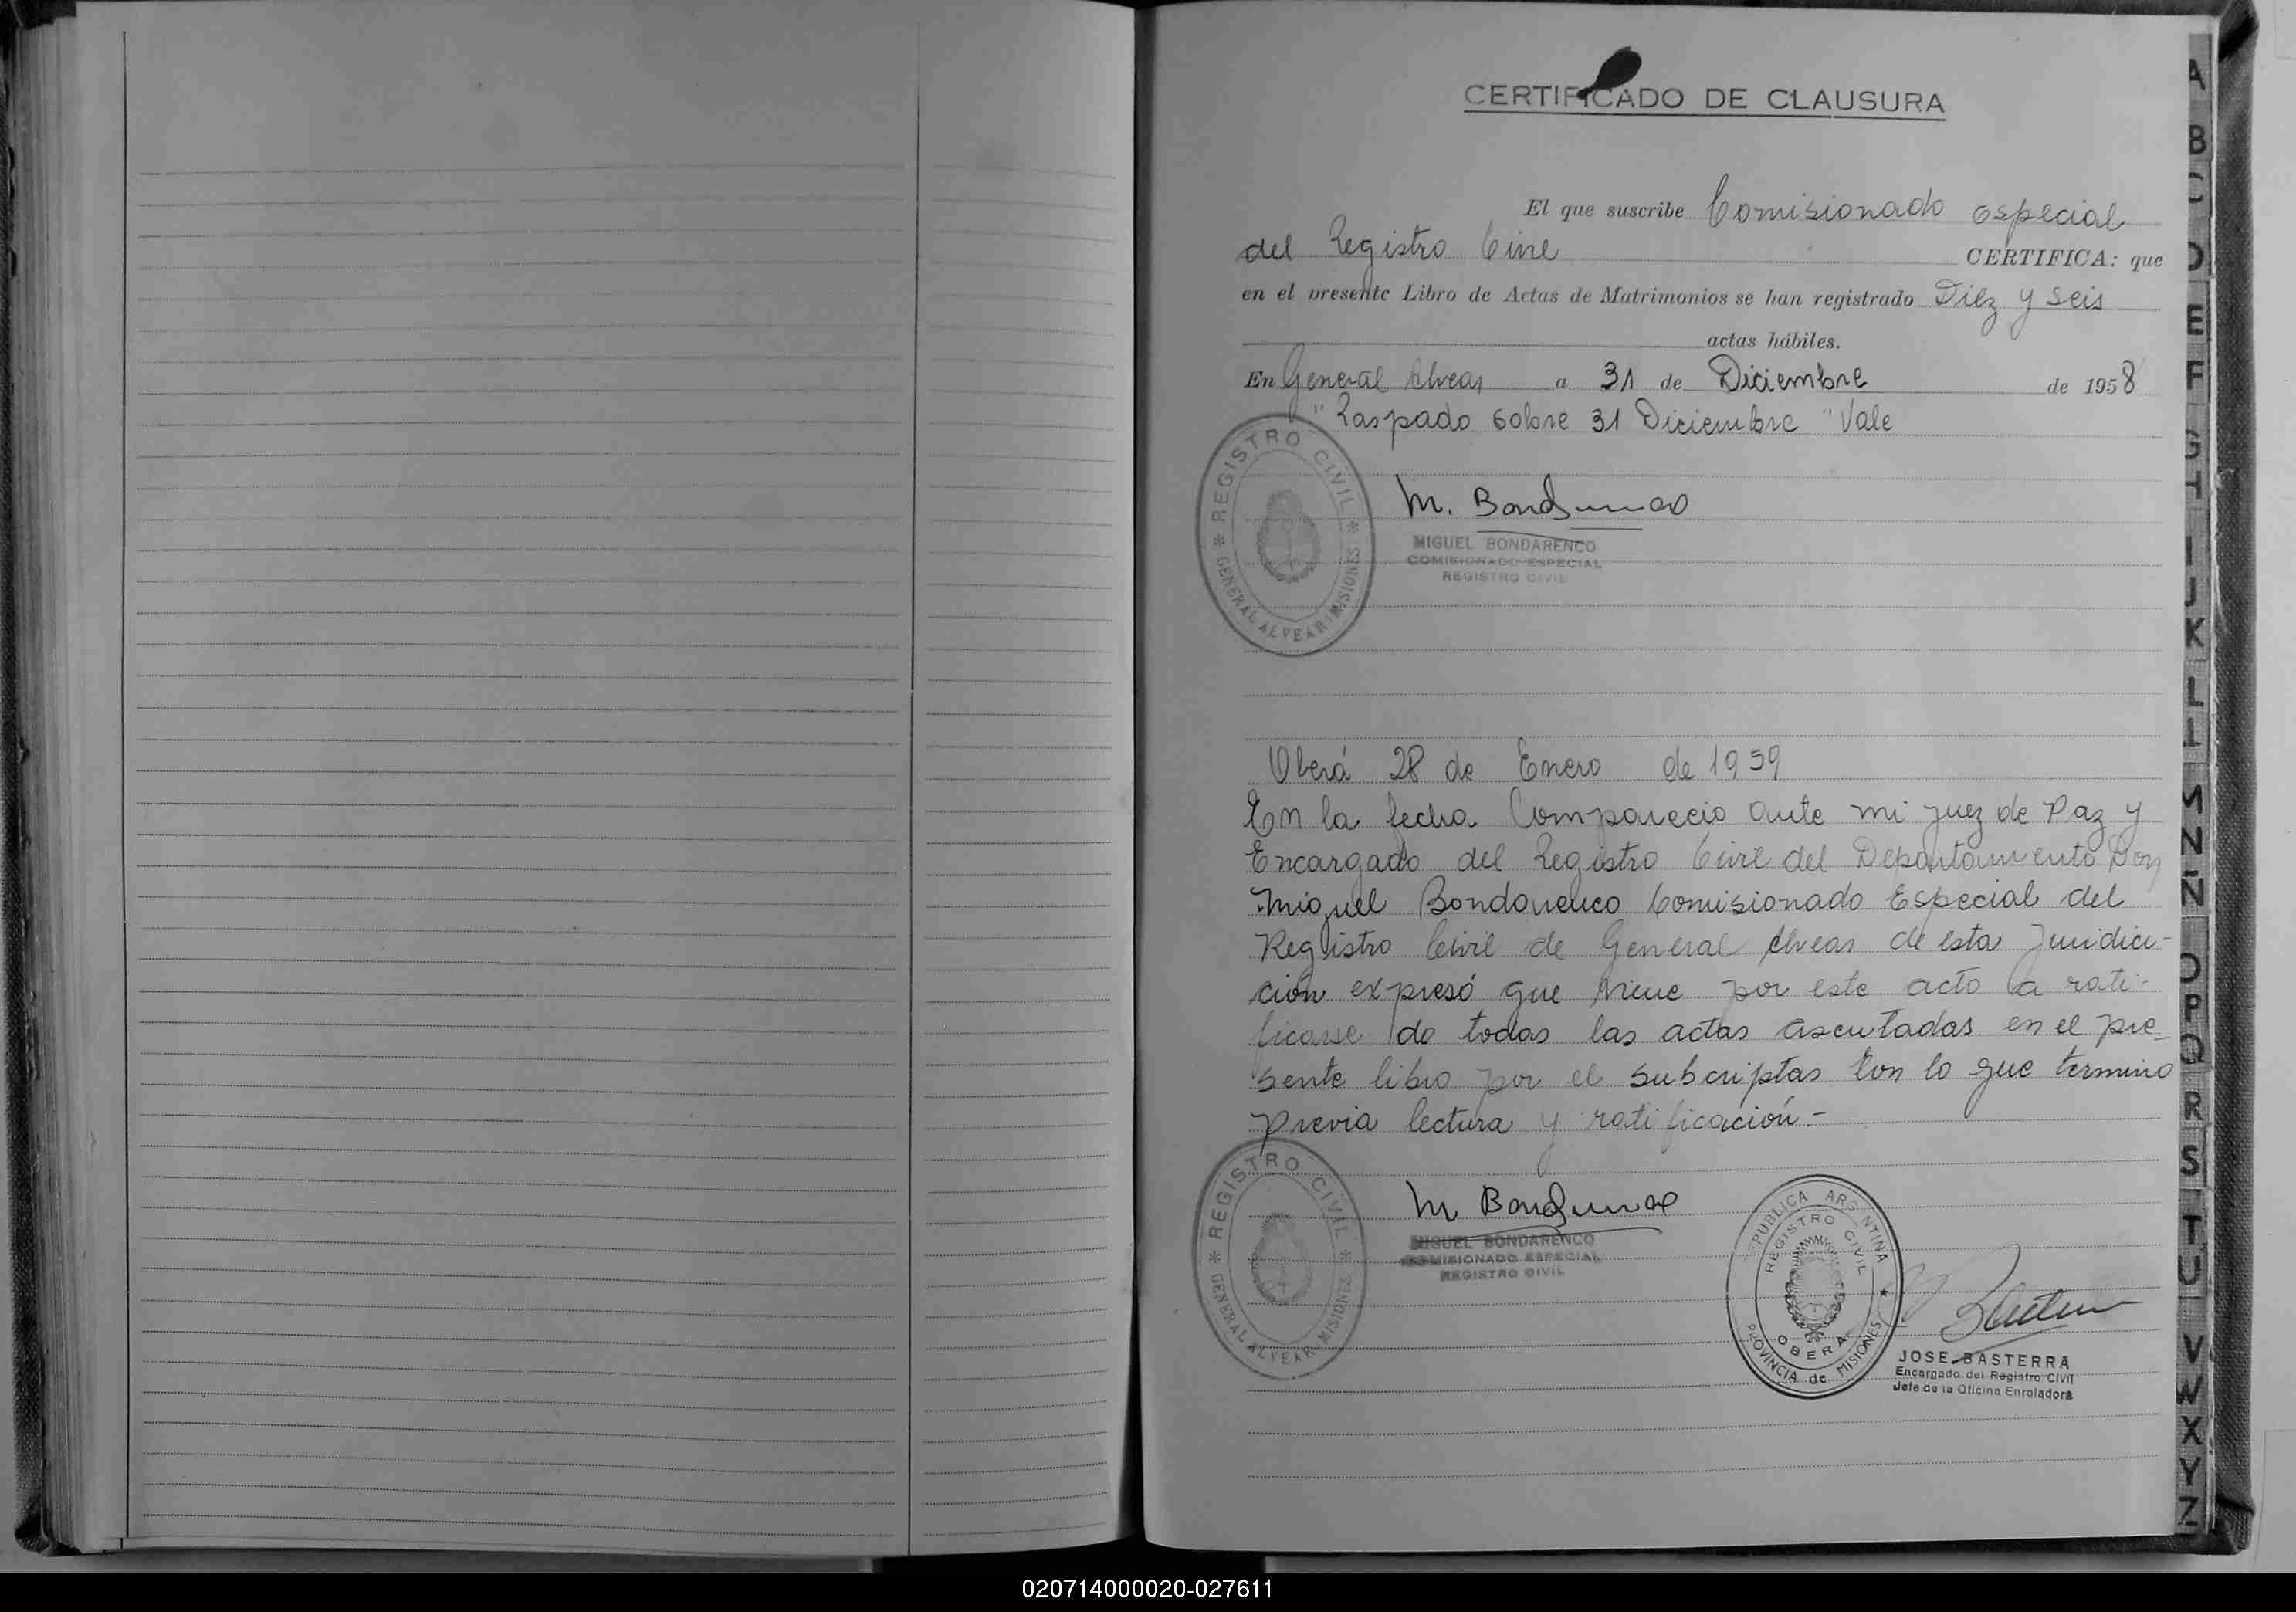 CERTIFICADO DE CLAUSURA
El que suscribe Comisionado Especial
del Registro Civil CERTIFICA: que
en el presente Libro de Actas de Matrimonios se han registrado Diez y Seis
actas hábiles.
En General Alvear a 31 de Diciembre de 1958
"Raspado sobre 31 Diciembre" Vale
REGISTRO CIVIL
* GENERAL ALVEAR MISIONES *
M. Bondarenco
MIGUEL BONDARENCO
COMISIONADO ESPECIAL
REGISTRO CIVIL
Oberá 28 de Enero de 1959
En la fecha Comparecio ante mi juez de Paz y
Encargado del Registro Civil del Departamento Don
Miguel Bondarenco Comisionado Especial del
Registro Civil de General Alvear de esta Juridici-
ción expresó que viene por este acto a rati-
ficarse de todas las actas asentadas en el pre-
sente libro por el subscriptas Con lo que termino
previa lectura y ratificación.-
REGISTRO CIVIL
* GENERAL ALVEAR MISIONES *
M Bondarenco
MIGUEL BONDARENCO
COMISIONADO ESPECIAL
REGISTRO CIVIL
REPUBLICA ARGENTINA
REGISTRO CIVIL
OBERA
PROVINCIA de MISIONES
JOSE BASTERRA
Encargado del Registro Civil
Jefe de la Oficina Enroladora
A
B
C
D
E
F
G
H
I
J
K
L
LL
M
N
Ñ
O
P
Q
R
S
T
U
V
W
X
Y
Z
020714000020-027611